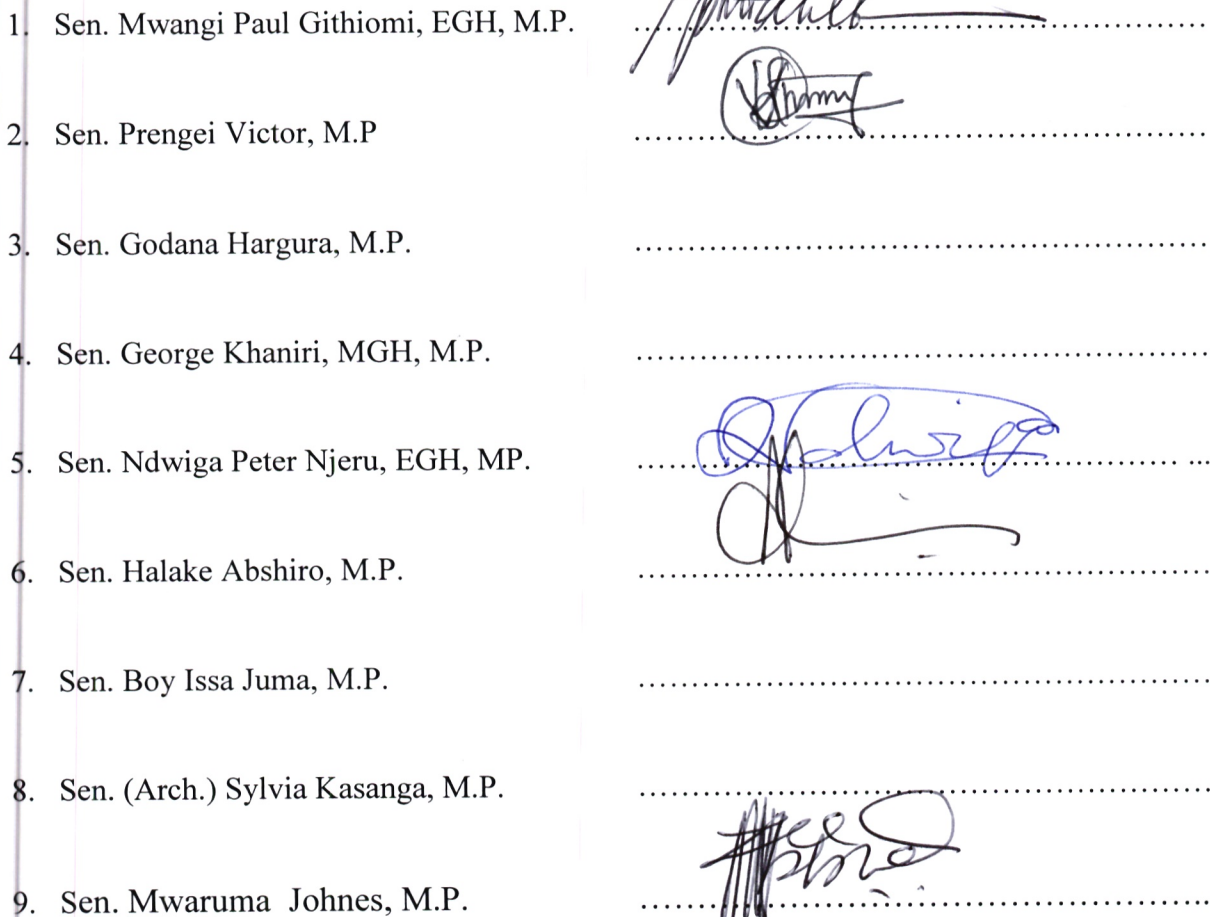 1. Sen. Mwangi Paul Githiomi, EGH, M.P. ....................................................
2. Sen. Prengei Victor, M.P ....................................................
3. Sen. Godana Hargura, M.P. ....................................................
4. Sen. George Khaniri, MGH, M.P. ....................................................
5. Sen. Ndwiga Peter Njeru, EGH, MP. ....................................................
6. Sen. Halake Abshiro, M.P. ....................................................
7. Sen. Boy Issa Juma, M.P. ....................................................
8. Sen. (Arch.) Sylvia Kasanga, M.P. ....................................................
9. Sen. Mwaruma Johnes, M.P. ....................................................